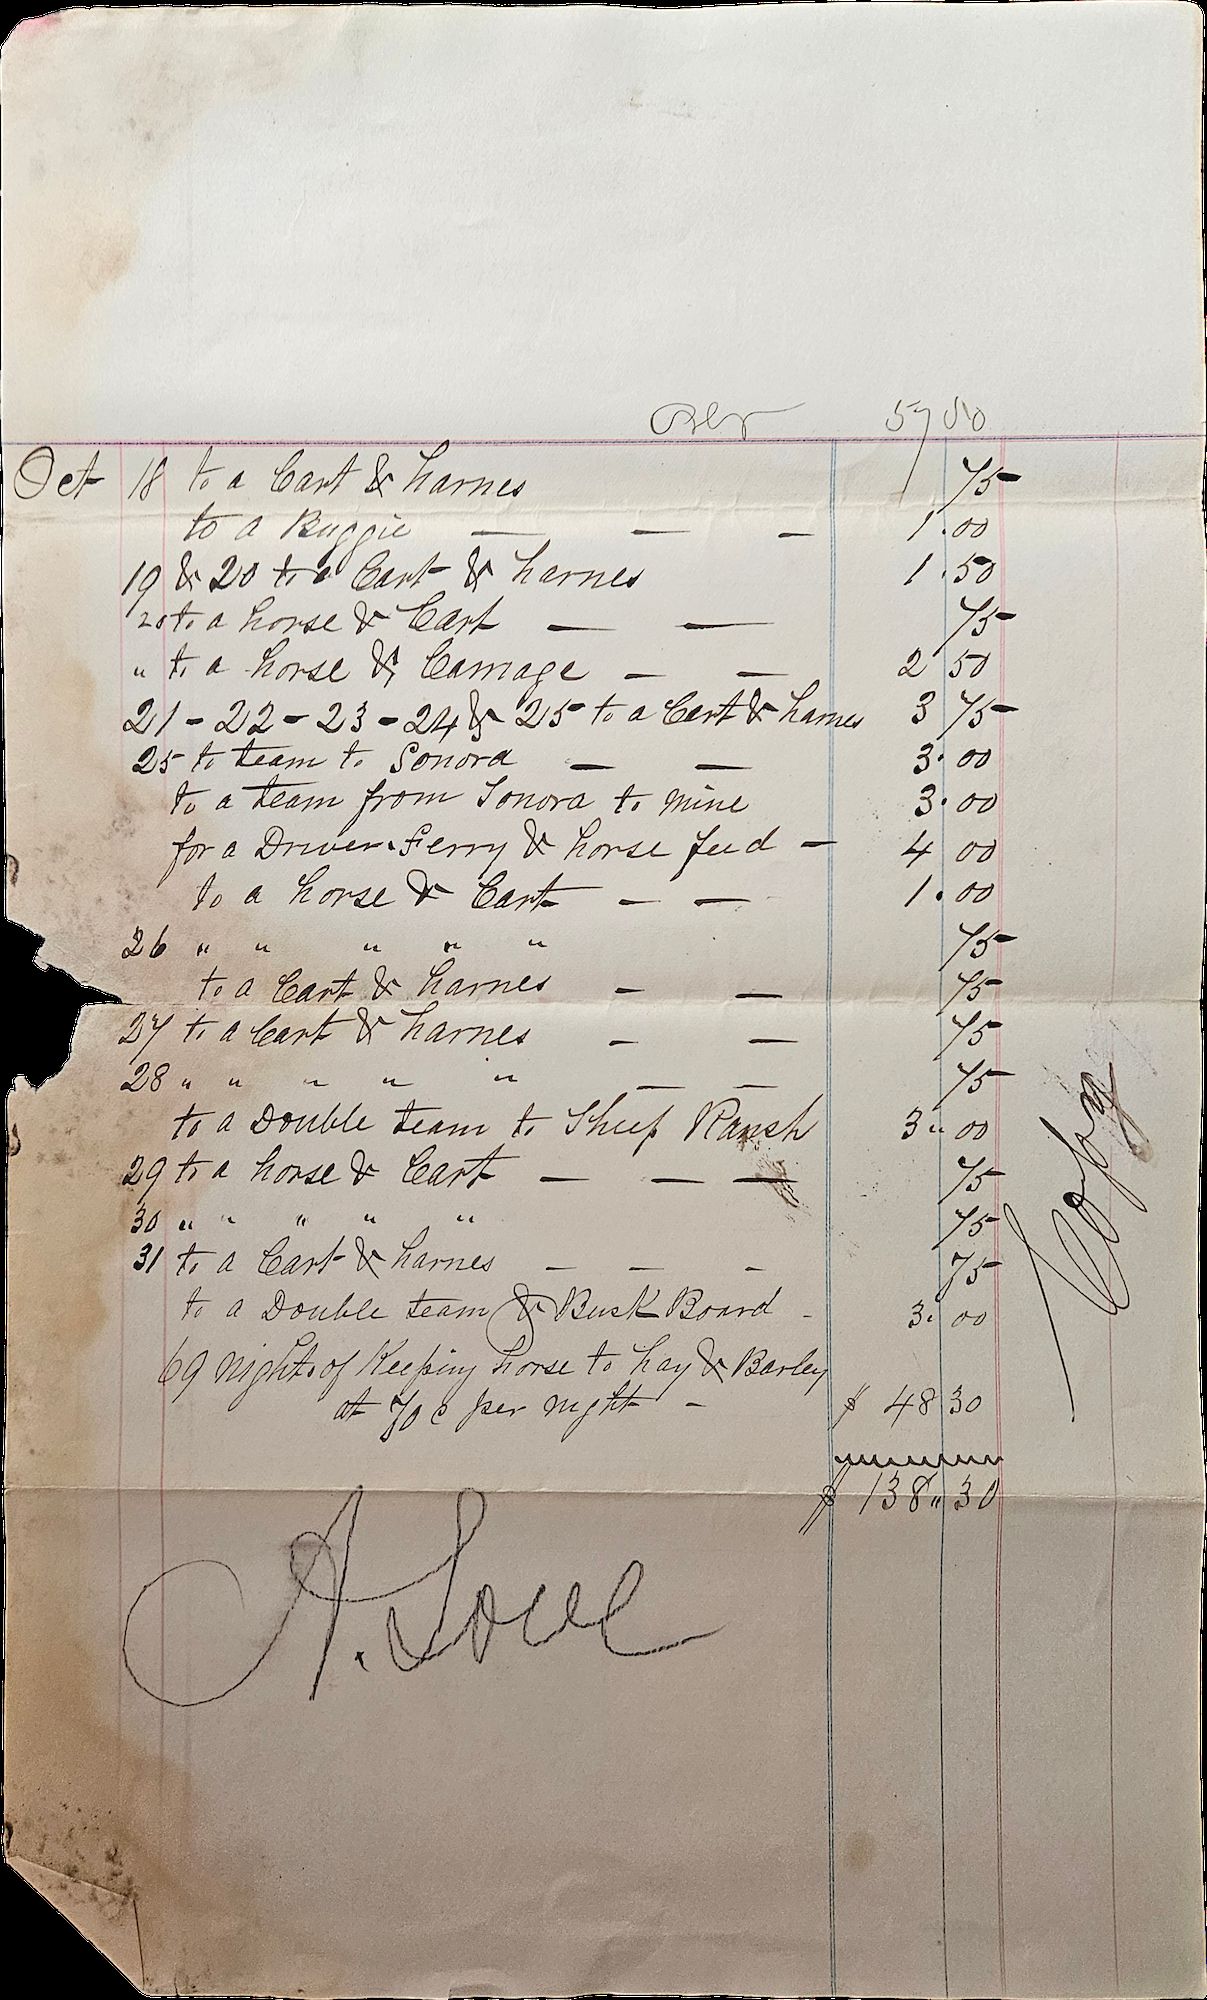 57 50
Oct 18 to a Cart & harnes 75
to a Buggie — — — 1.00
19 & 20 to a Cart & harnes 1.50
20 to a horse & Cart — — 75
" to a horse & Carriage — — 2 50
21 - 22 - 23 - 24 & 25 to a Cart & harnes 3 75
25 to team to Sonora — — 3.00
to a team from Sonora to mine 3.00
for a Driver. Ferry & horse feed — 4 00
to a horse & Cart — — 1.00
26 " " " " " 75
to a Cart & harnes — — 75
27 to a Cart & harnes — — 75
28 " " " " " — — 75
to a Double team to Sheep Ransh 3" 00
29 to a horse & Cart — — — 75
30 " " " " " 75
31 to a Cart & harnes — — — 75
to a Double team & Busk Board - 3. 00
69 nights of Keeping horse to hay & Barley
at 70 c per night - $ 48 30
$ 138" 30
Copy
A. Love